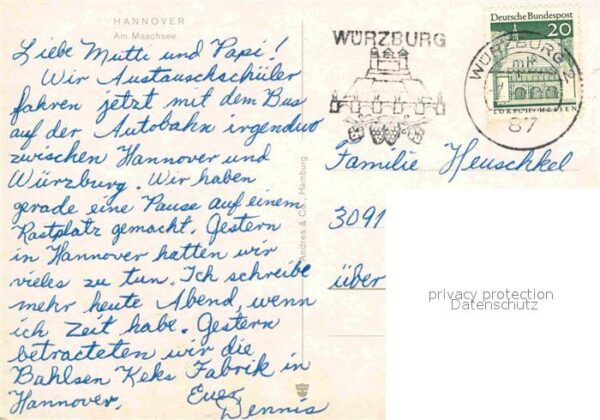 HANNOVER
Am Maschsee
Liebe Mutti und Papi!
Wir Austauschschüler
fahren jetzt mit dem Bus
auf der Autobahn irgendwo
zwischen Hannover und
Würzburg. Wir haben
gerade eine Pause auf einem
Rastplatz gemacht. Gestern
in Hannover hatten wir
vieles zu tun. Ich schreibe
mehr heute Abend, wenn
ich Zeit habe. Gestern
betrachteten wir die
Bahlsen Keks Fabrik in
Hannover.
Euer
Dennis
Andres & Co. Hamburg
WÜRZBURG
Deutsche Bundespost
20
LORSCH/HESSEN
WÜRZBURG 2
mh
87
Familie Heuschkel
3091
über
privacy protection
Datenschutz